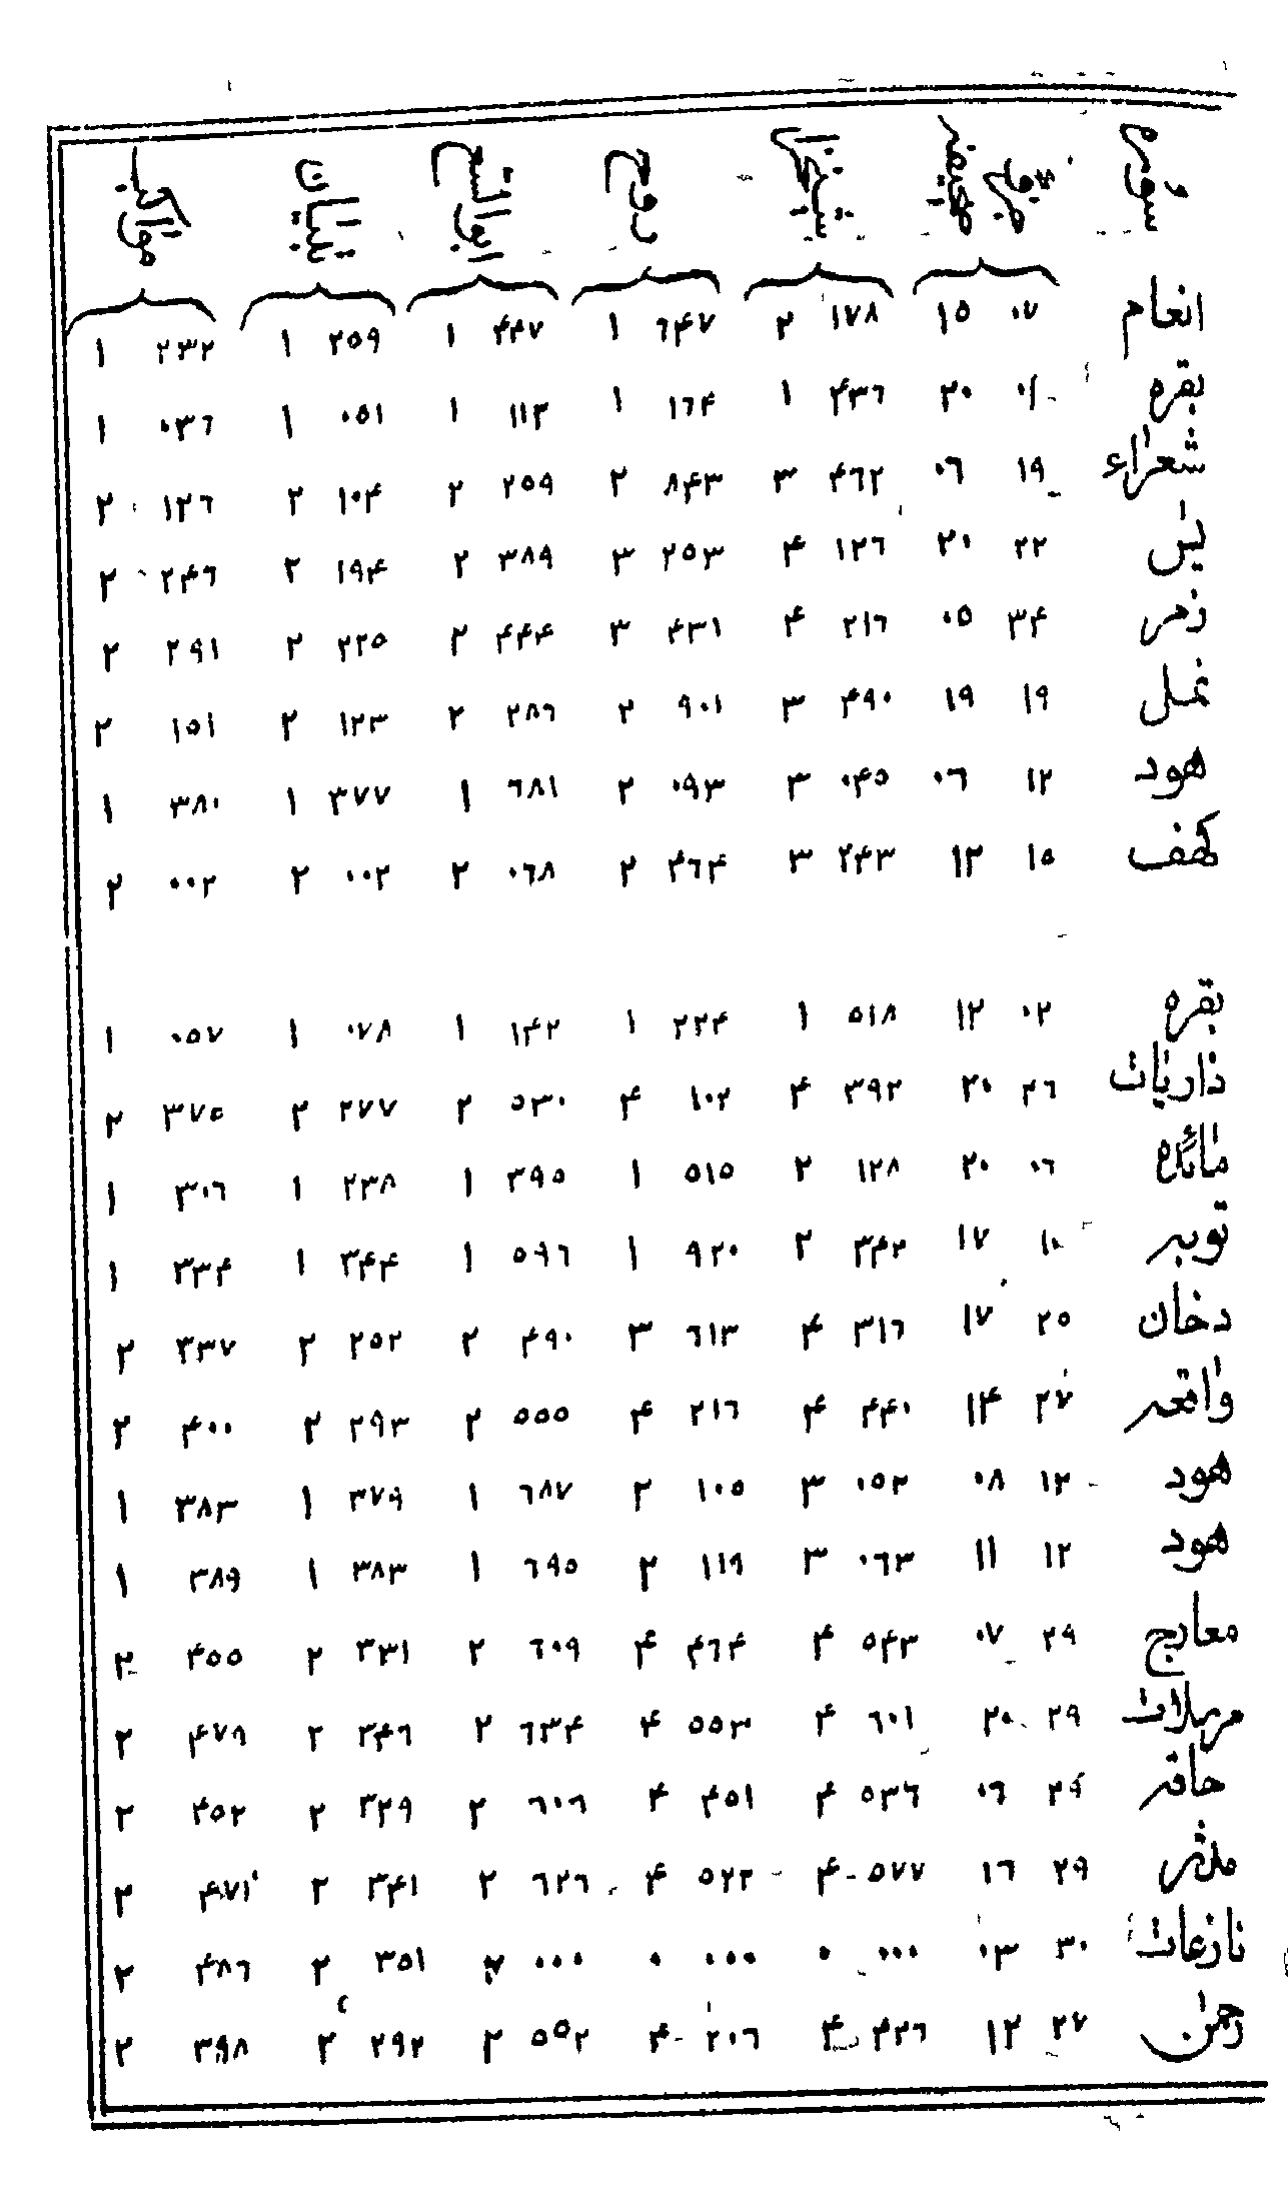 سوره روح ابوالسعود تبیان مواكب
انعام ۰۷ ۱۵ ۱۷۸ ۲ ۶۴۷ ۱ ۴۴۷ ۱ ۲۵۹ ۱ ۲۳۲ ۱
بقره ۰۱ ۲۰ ۴۳۶ ۱ ۱۶۴ ۱ ۱۱۳ ۱ ۰۵۱ ۱ ۰۳۶ ۱
شعراء ۱۹ ۰۶ ۴۶۲ ۳ ۸۴۳ ۲ ۲۵۹ ۲ ۱۰۴ ۲ ۱۲۶ ۲
یس ۲۲ ۲۰ ۱۲۶ ۴ ۲۵۳ ۳ ۳۸۹ ۲ ۱۹۴ ۲ ۲۴۶ ۲
زمر ۳۴ ۰۵ ۲۱۶ ۴ ۴۳۱ ۳ ۴۴۴ ۲ ۲۲۵ ۲ ۲۹۱ ۲
نمل ۱۹ ۱۹ ۴۹۰ ۳ ۹۰۱ ۲ ۲۸۶ ۲ ۱۲۳ ۲ ۱۵۱ ۲
هود ۱۲ ۰۶ ۰۴۵ ۳ ۰۹۳ ۲ ۶۸۱ ۱ ۳۷۷ ۱ ۳۸۰ ۱
كهف ۱۵ ۱۲ ۲۴۳ ۳ ۴۶۴ ۲ ۰۶۸ ۲ ۰۰۲ ۲ ۰۰۲ ۲
بقره ۰۲ ۱۲ ۵۱۸ ۱ ۲۲۴ ۱ ۱۴۲ ۱ ۰۷۸ ۱ ۰۵۷ ۱
ذاریات ۲۶ ۲۰ ۳۹۲ ۴ ۱۰۲ ۴ ۵۳۰ ۲ ۲۷۷ ۲ ۳۷۵ ۲
مائده ۰۶ ۲۰ ۱۲۸ ۲ ۵۱۵ ۱ ۳۹۵ ۱ ۲۳۸ ۱ ۳۰۶ ۱
توبه ۱۰ ۱۷ ۳۴۲ ۲ ۹۲۰ ۱ ۵۹۶ ۱ ۳۴۴ ۱ ۳۳۴ ۱
دخان ۲۵ ۱۷ ۳۱۶ ۴ ۶۱۳ ۳ ۴۹۰ ۲ ۲۵۲ ۲ ۳۳۷ ۲
واقعه ۲۷ ۱۴ ۴۴۰ ۴ ۲۱۶ ۴ ۵۵۵ ۲ ۲۹۳ ۲ ۴۰۰ ۲
هود ۱۲ ۰۸ ۰۵۲ ۳ ۱۰۵ ۲ ۶۸۷ ۱ ۳۷۹ ۱ ۳۸۳ ۱
هود ۱۲ ۱۱ ۰۶۳ ۳ ۱۱۹ ۲ ۶۹۵ ۱ ۳۸۳ ۱ ۳۸۹ ۱
معارج ۲۹ ۰۷ ۵۴۳ ۴ ۴۶۴ ۴ ۶۰۹ ۲ ۳۳۱ ۲ ۴۵۵ ۲
مرسلات ۲۹ ۲۰ ۶۰۱ ۴ ۵۵۳ ۴ ۶۳۴ ۲ ۳۴۶ ۲ ۴۷۹ ۲
حاقه ۲۹ ۰۶ ۵۳۶ ۴ ۴۵۱ ۴ ۶۰۶ ۲ ۳۲۹ ۲ ۴۵۲ ۲
مدثر ۲۹ ۱۶ ۵۷۷ ۴ ۵۲۲ ۴ ۶۲۶ ۲ ۳۴۱ ۲ ۴۷۱ ۲
نازعات ۳۰ ۰۳ ۰۰۰ ۰ ۰۰۰ ۰ ۰۰۰ ۲ ۳۵۱ ۲ ۴۸۶ ۲
رحمن ۲۷ ۱۲ ۴۲۶ ۴ ۲۰۶ ۴ ۵۵۲ ۲ ۲۹۲ ۲ ۳۹۸ ۲